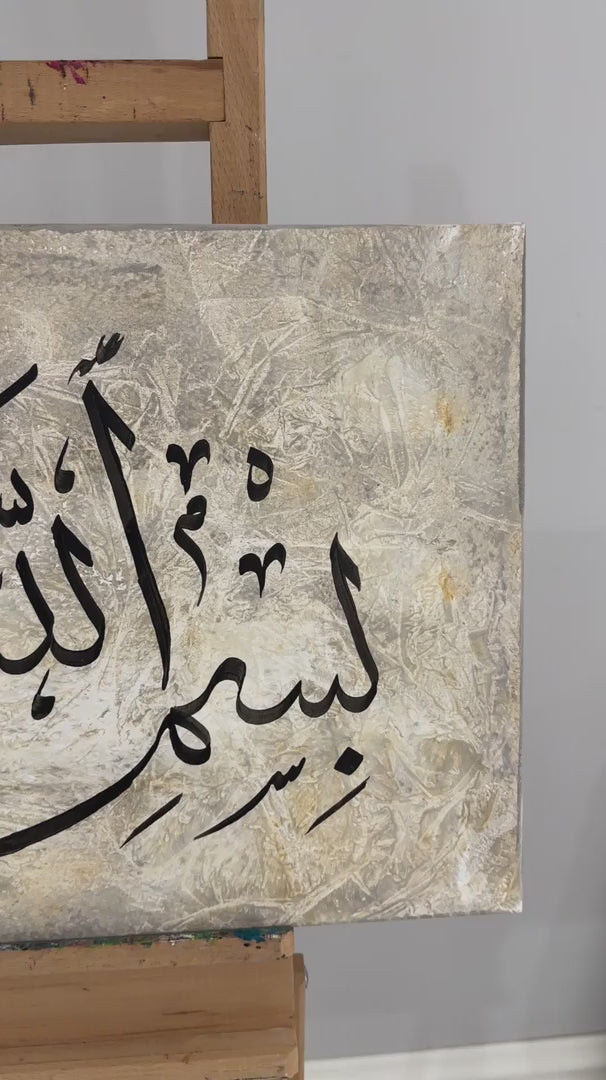 بِسْمِ اللّٰه